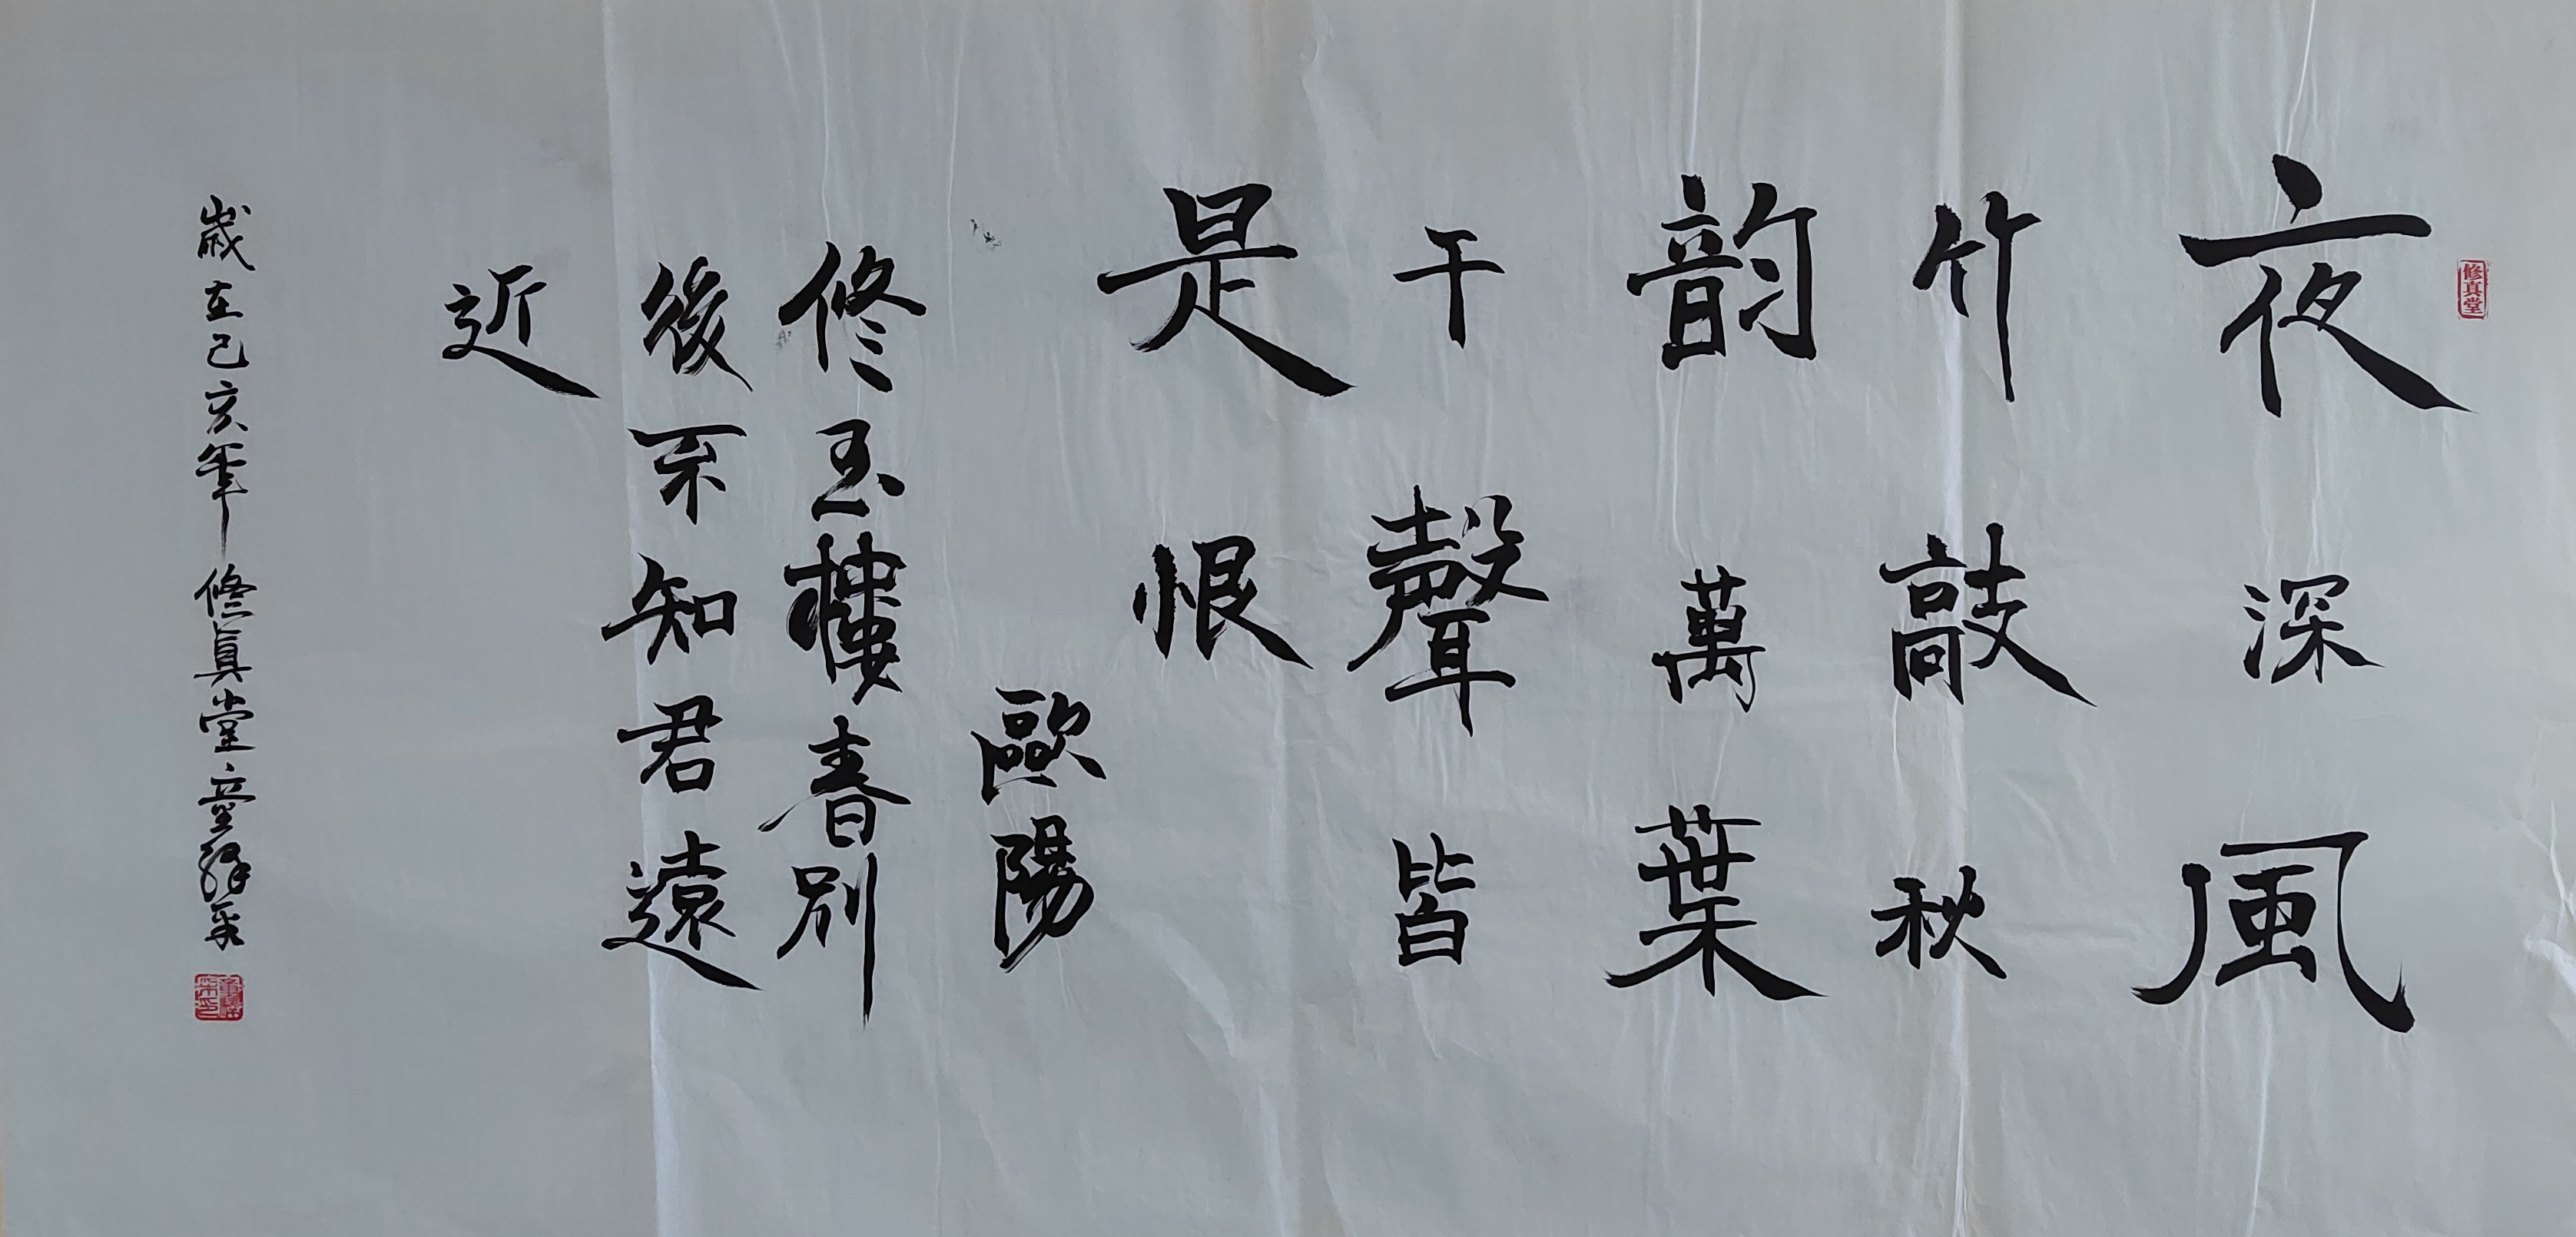 修真堂
夜深風
竹敲秋
韵萬葉
干聲皆
是恨
歐陽
修玉樓春別
後不知君遠
近
歲在己亥年修真堂童